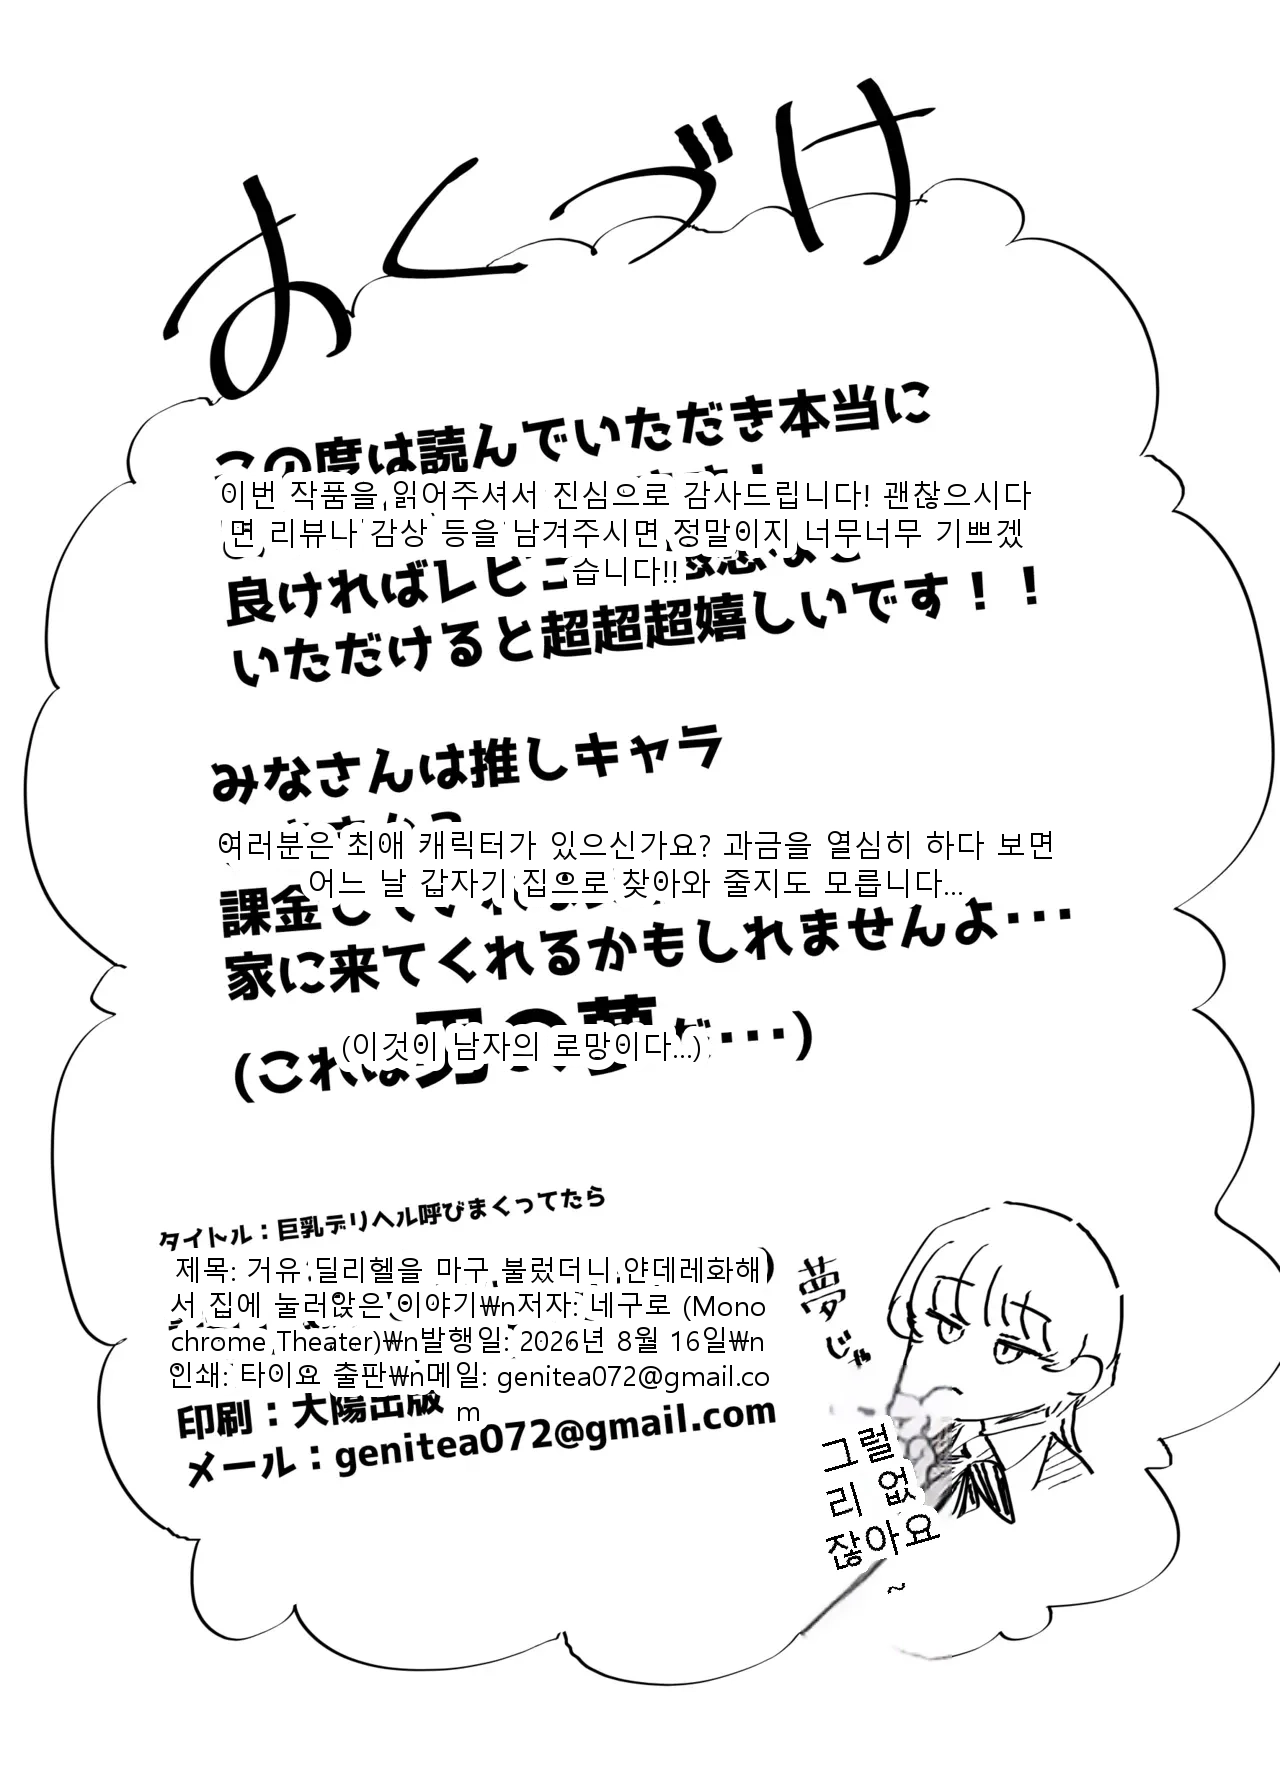 おくづけ
この度は読んでいただき本当に
이번 작품을 읽어주셔서 진심으로 감사드립니다! 괜찮으시다
면 리뷰나 감상 등을 남겨주시면 정말이지 너무너무 기쁘겠
습니다!!
良ければレビ
いただけると超超超嬉しいです！！
みなさんは推しキャラ
여러분은 최애 캐릭터가 있으신가요? 과금을 열심히 하다 보면
어느 날 갑자기 집으로 찾아와 줄지도 모릅니다...
課金
家に来てくれるかもしれませんよ・・・
(이것이 남자의 로망이다...)
(これは
・・・)
タイトル：巨乳デリヘル呼びまくってたら
제목: 거유 딜리헬을 마구 불렀더니 얀데레화해
서 집에 눌러앉은 이야기₩n저자: 네구로 (Mono
chrome Theater)₩n발행일: 2026년 8월 16일₩n
인쇄: 타이요 출판₩n메일: genitea072@gmail.co
m
印刷：大陽出版
メール：genitea072@gmail.com
夢じゃ
그럴
리 없
잖아요
~